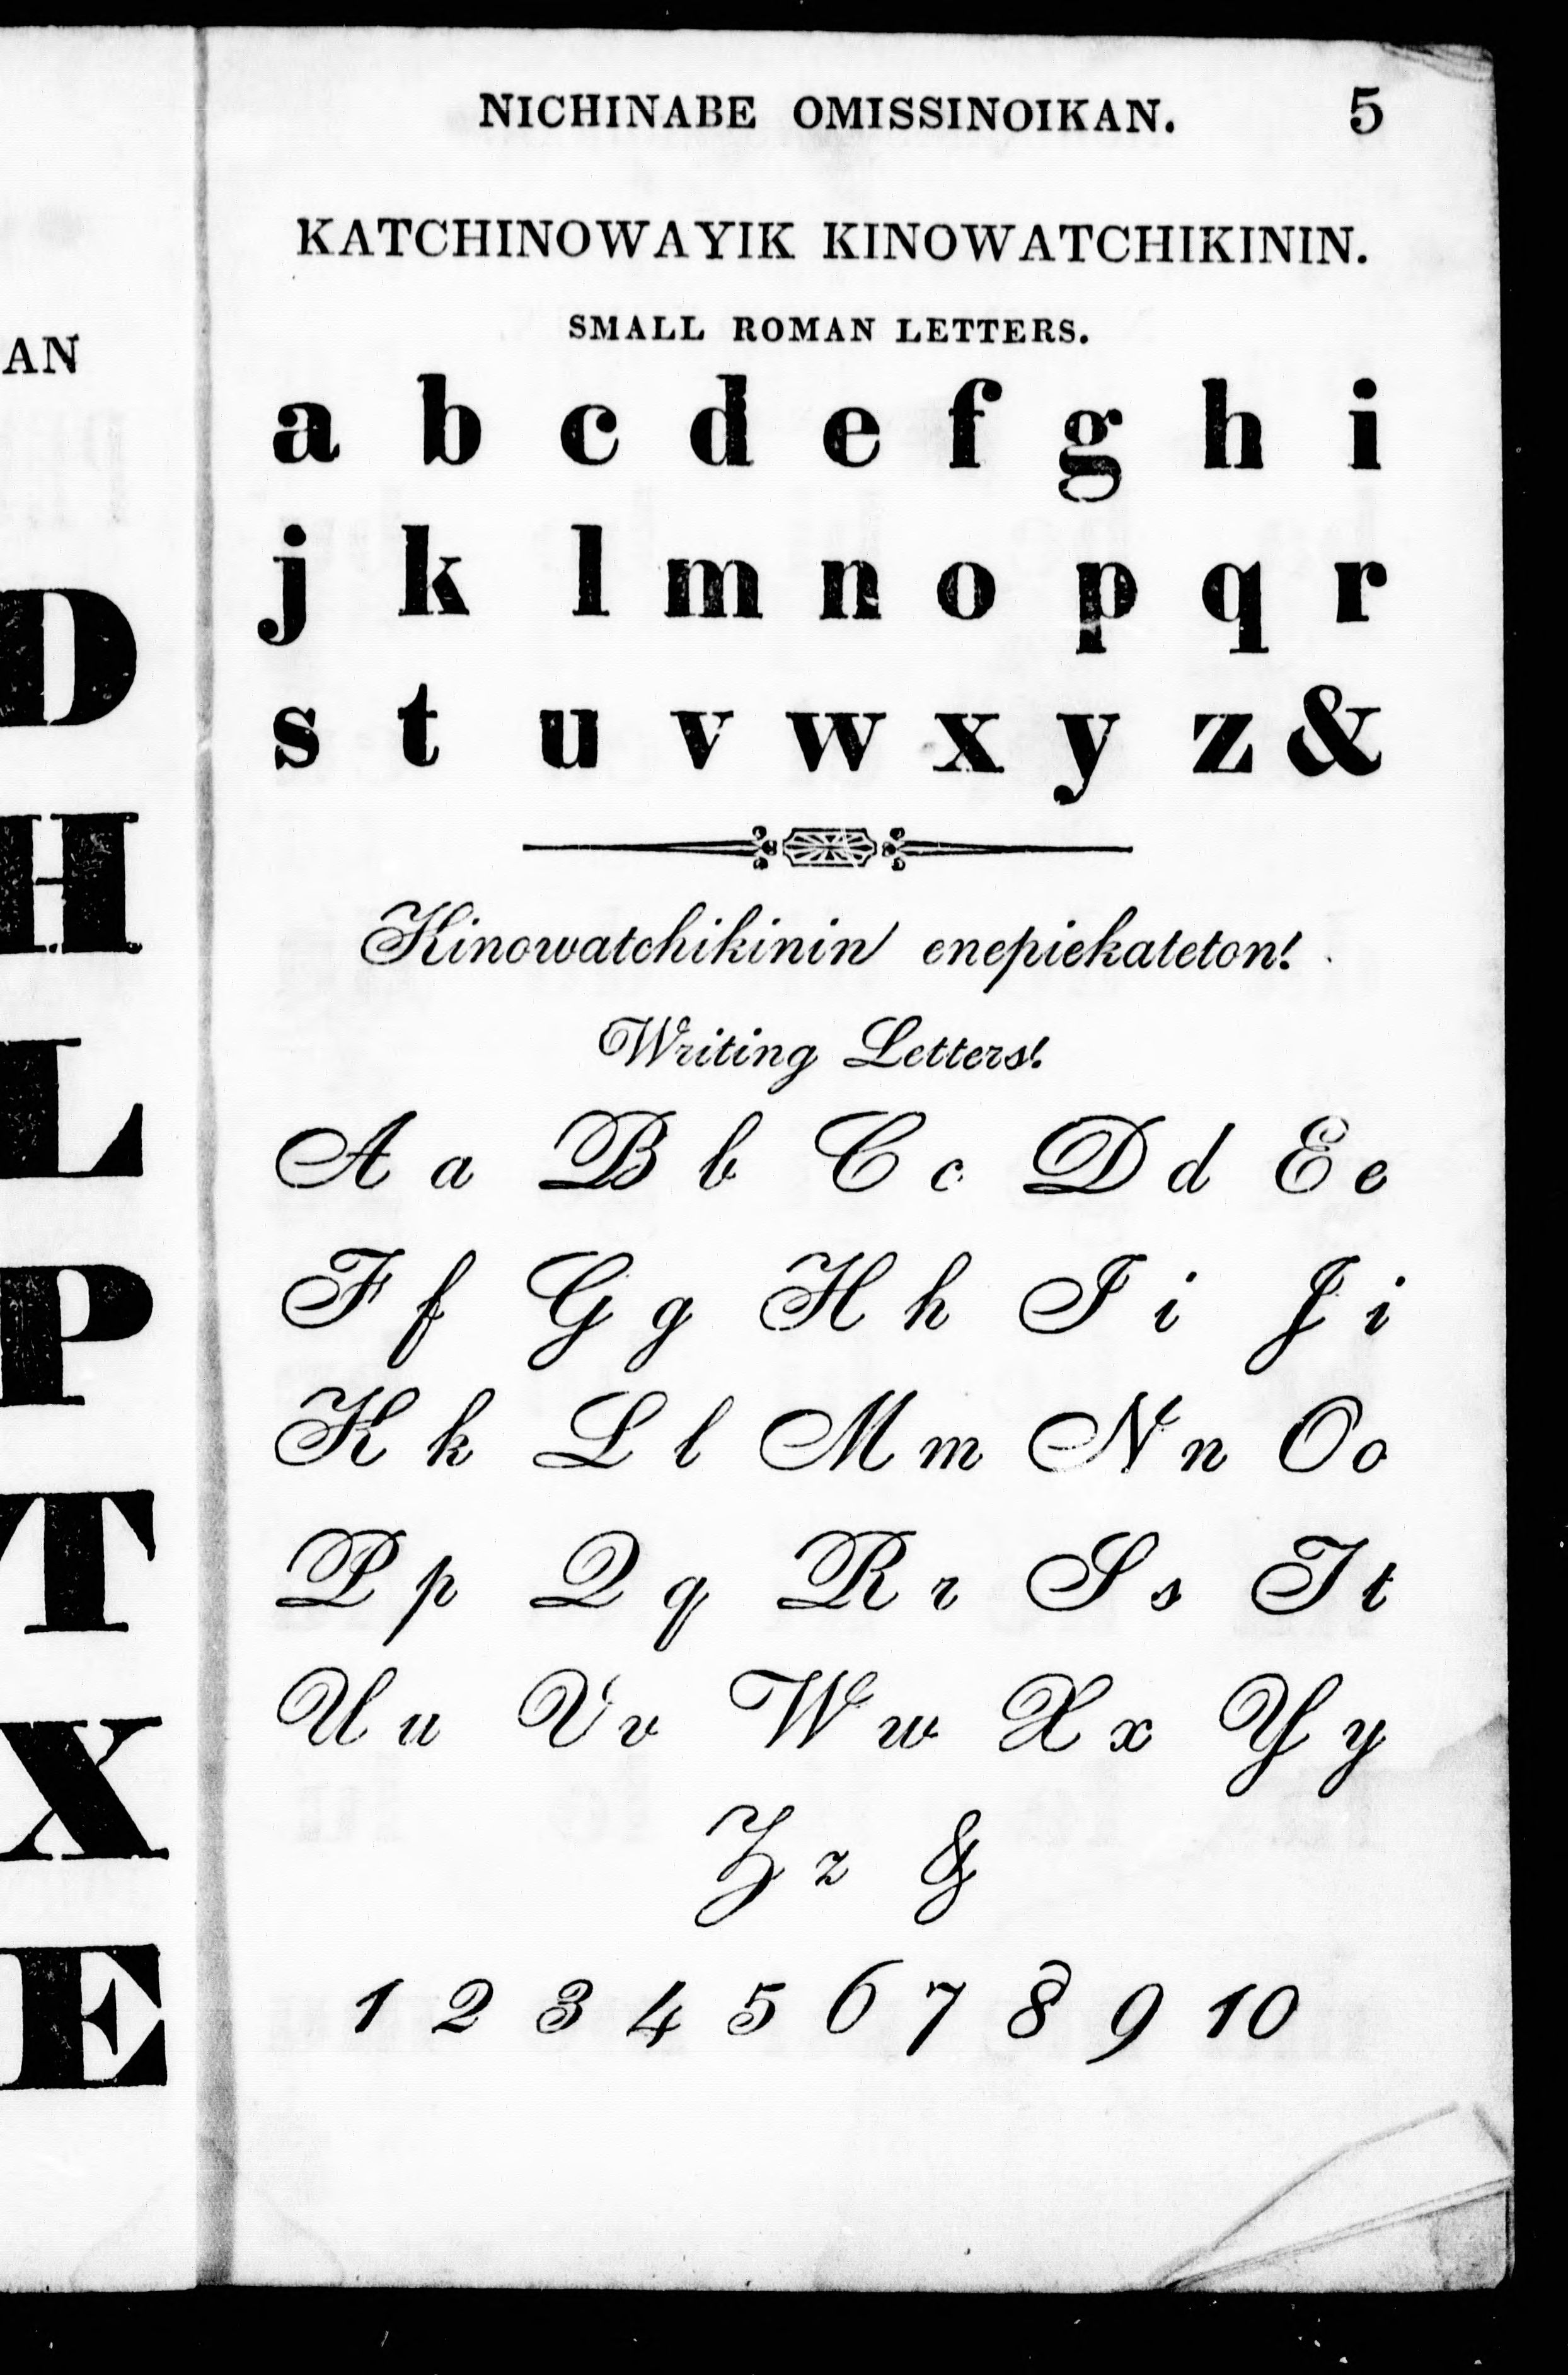 NICHINABE OMISSINOIKAN. 5
KATCHINOWAYIK KINOWATCHIKININ.
SMALL ROMAN LETTERS.
a b c d e f g h i
j k l m n o p q r
s t u v w x y z &
Kinowatchikinin enepiekateton!
Writing Letters!
A a B b C c D d E e
F f G g H h I i J i
K k L l M m N n O o
P p Q q R r S s T t
U u V v W w X x Y y
Z z &
1 2 3 4 5 6 7 8 9 10
AN
D
H
L
P
T
X
E